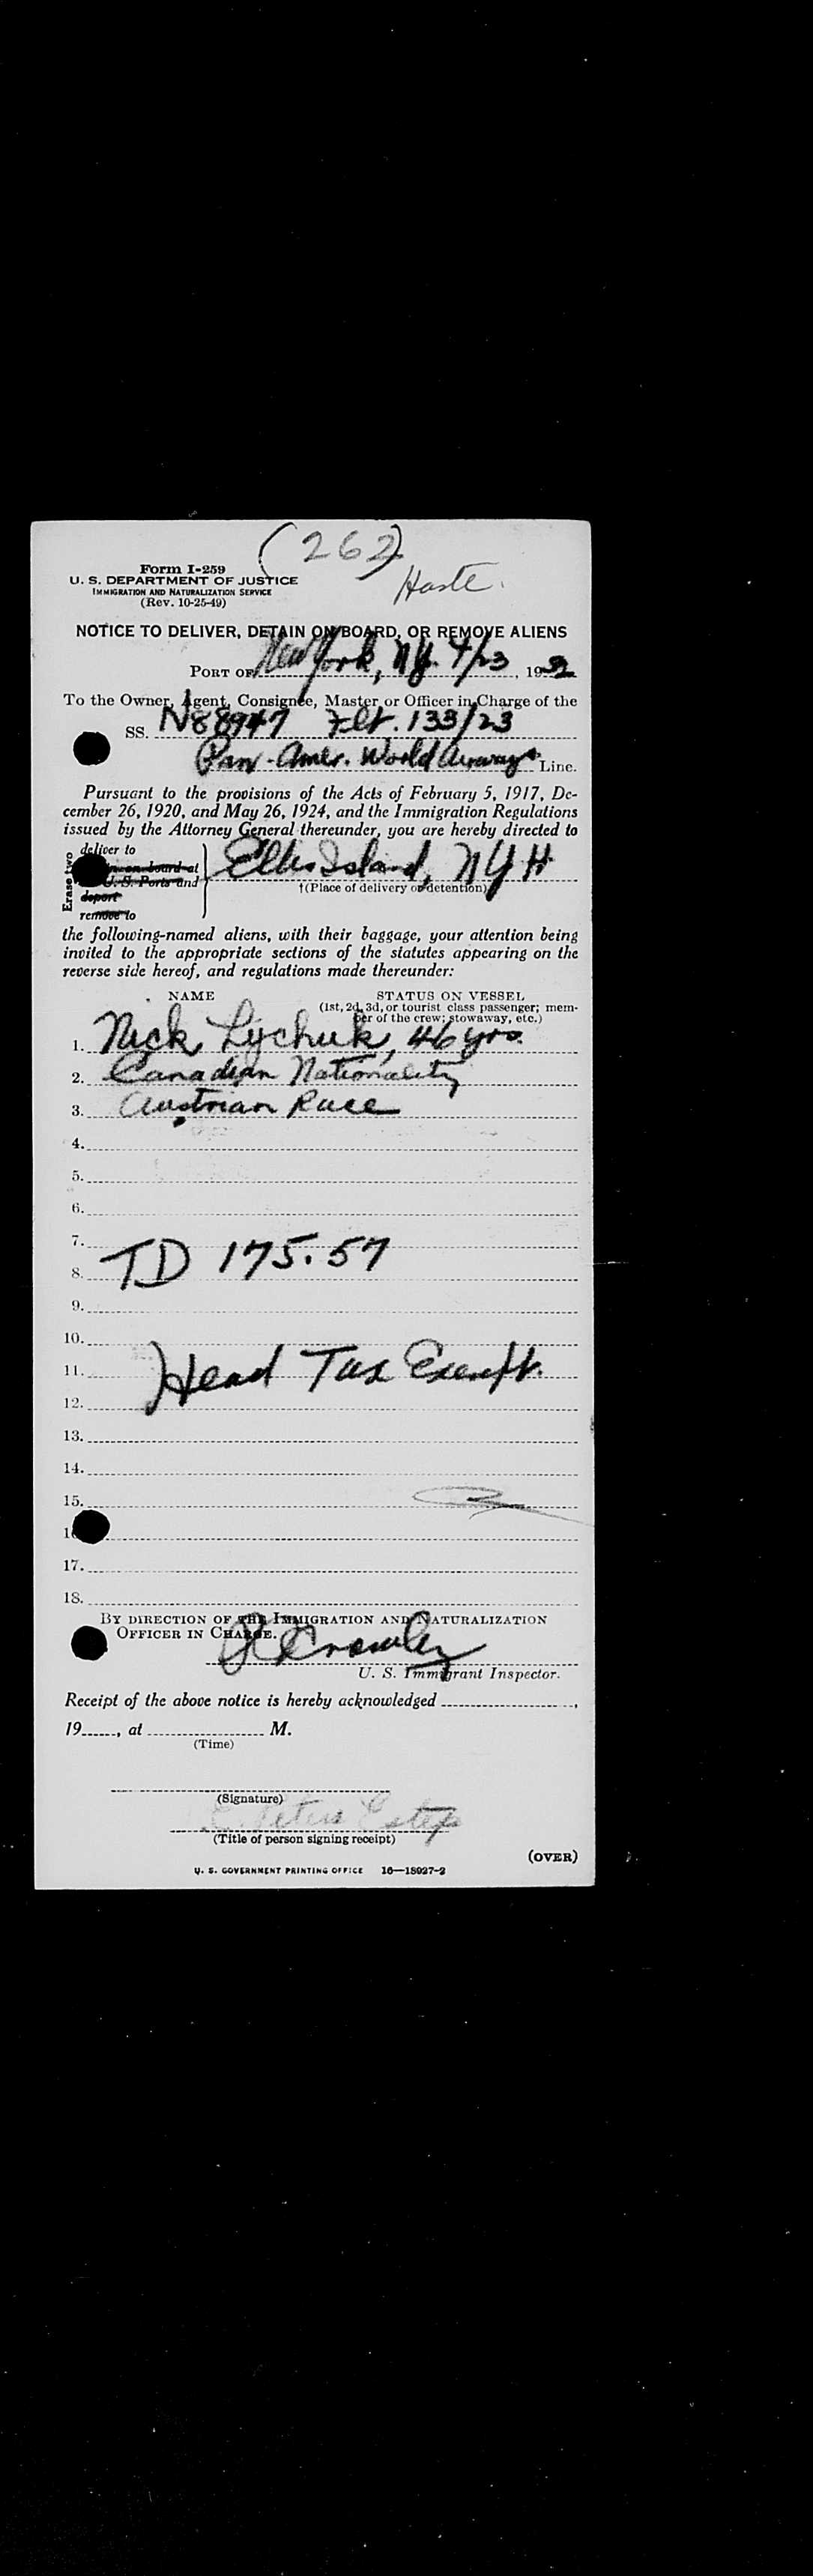 (262)
Haste.
Form I-259
U. S. DEPARTMENT OF JUSTICE
IMMIGRATION AND NATURALIZATION SERVICE
(Rev. 10-25-49)
NOTICE TO DELIVER, DETAIN ON BOARD, OR REMOVE ALIENS
PORT OF New York, N.Y. 4/23, 1952
To the Owner, Agent, Consignee, Master or Officer in Charge of the
SS. N88947 Flt. 133/23
Pan-Amer. World Airways Line.
Pursuant to the provisions of the Acts of February 5, 1917, De-
cember 26, 1920, and May 26, 1924, and the Immigration Regulations
issued by the Attorney General thereunder, you are hereby directed to
Erase two
deliver to
on board at
U. S. Ports and
deport
remove to
Ellis Island, NYH
†(Place of delivery or detention)
the following-named aliens, with their baggage, your attention being
invited to the appropriate sections of the statutes appearing on the
reverse side hereof, and regulations made thereunder:
NAME STATUS ON VESSEL
(1st, 2d, 3d, or tourist class passenger; mem-
ber of the crew; stowaway, etc.)
1. Nick Lychuk, 46 yrs.
2. Canadian Nationality
3. Austrian Race
4.
5.
6.
7.
8. TD 175.57
9.
10.
11. Head Tax Exempt.
12.
13.
14.
15.
16
17.
18.
BY DIRECTION OF THE IMMIGRATION AND NATURALIZATION
OFFICER IN CHARGE.
Crowley
U. S. Immigrant Inspector.
Receipt of the above notice is hereby acknowledged ,
19 , at M.
(Time)
(Signature)
(Title of person signing receipt)
(OVER)
U. S. GOVERNMENT PRINTING OFFICE 16—18027-2